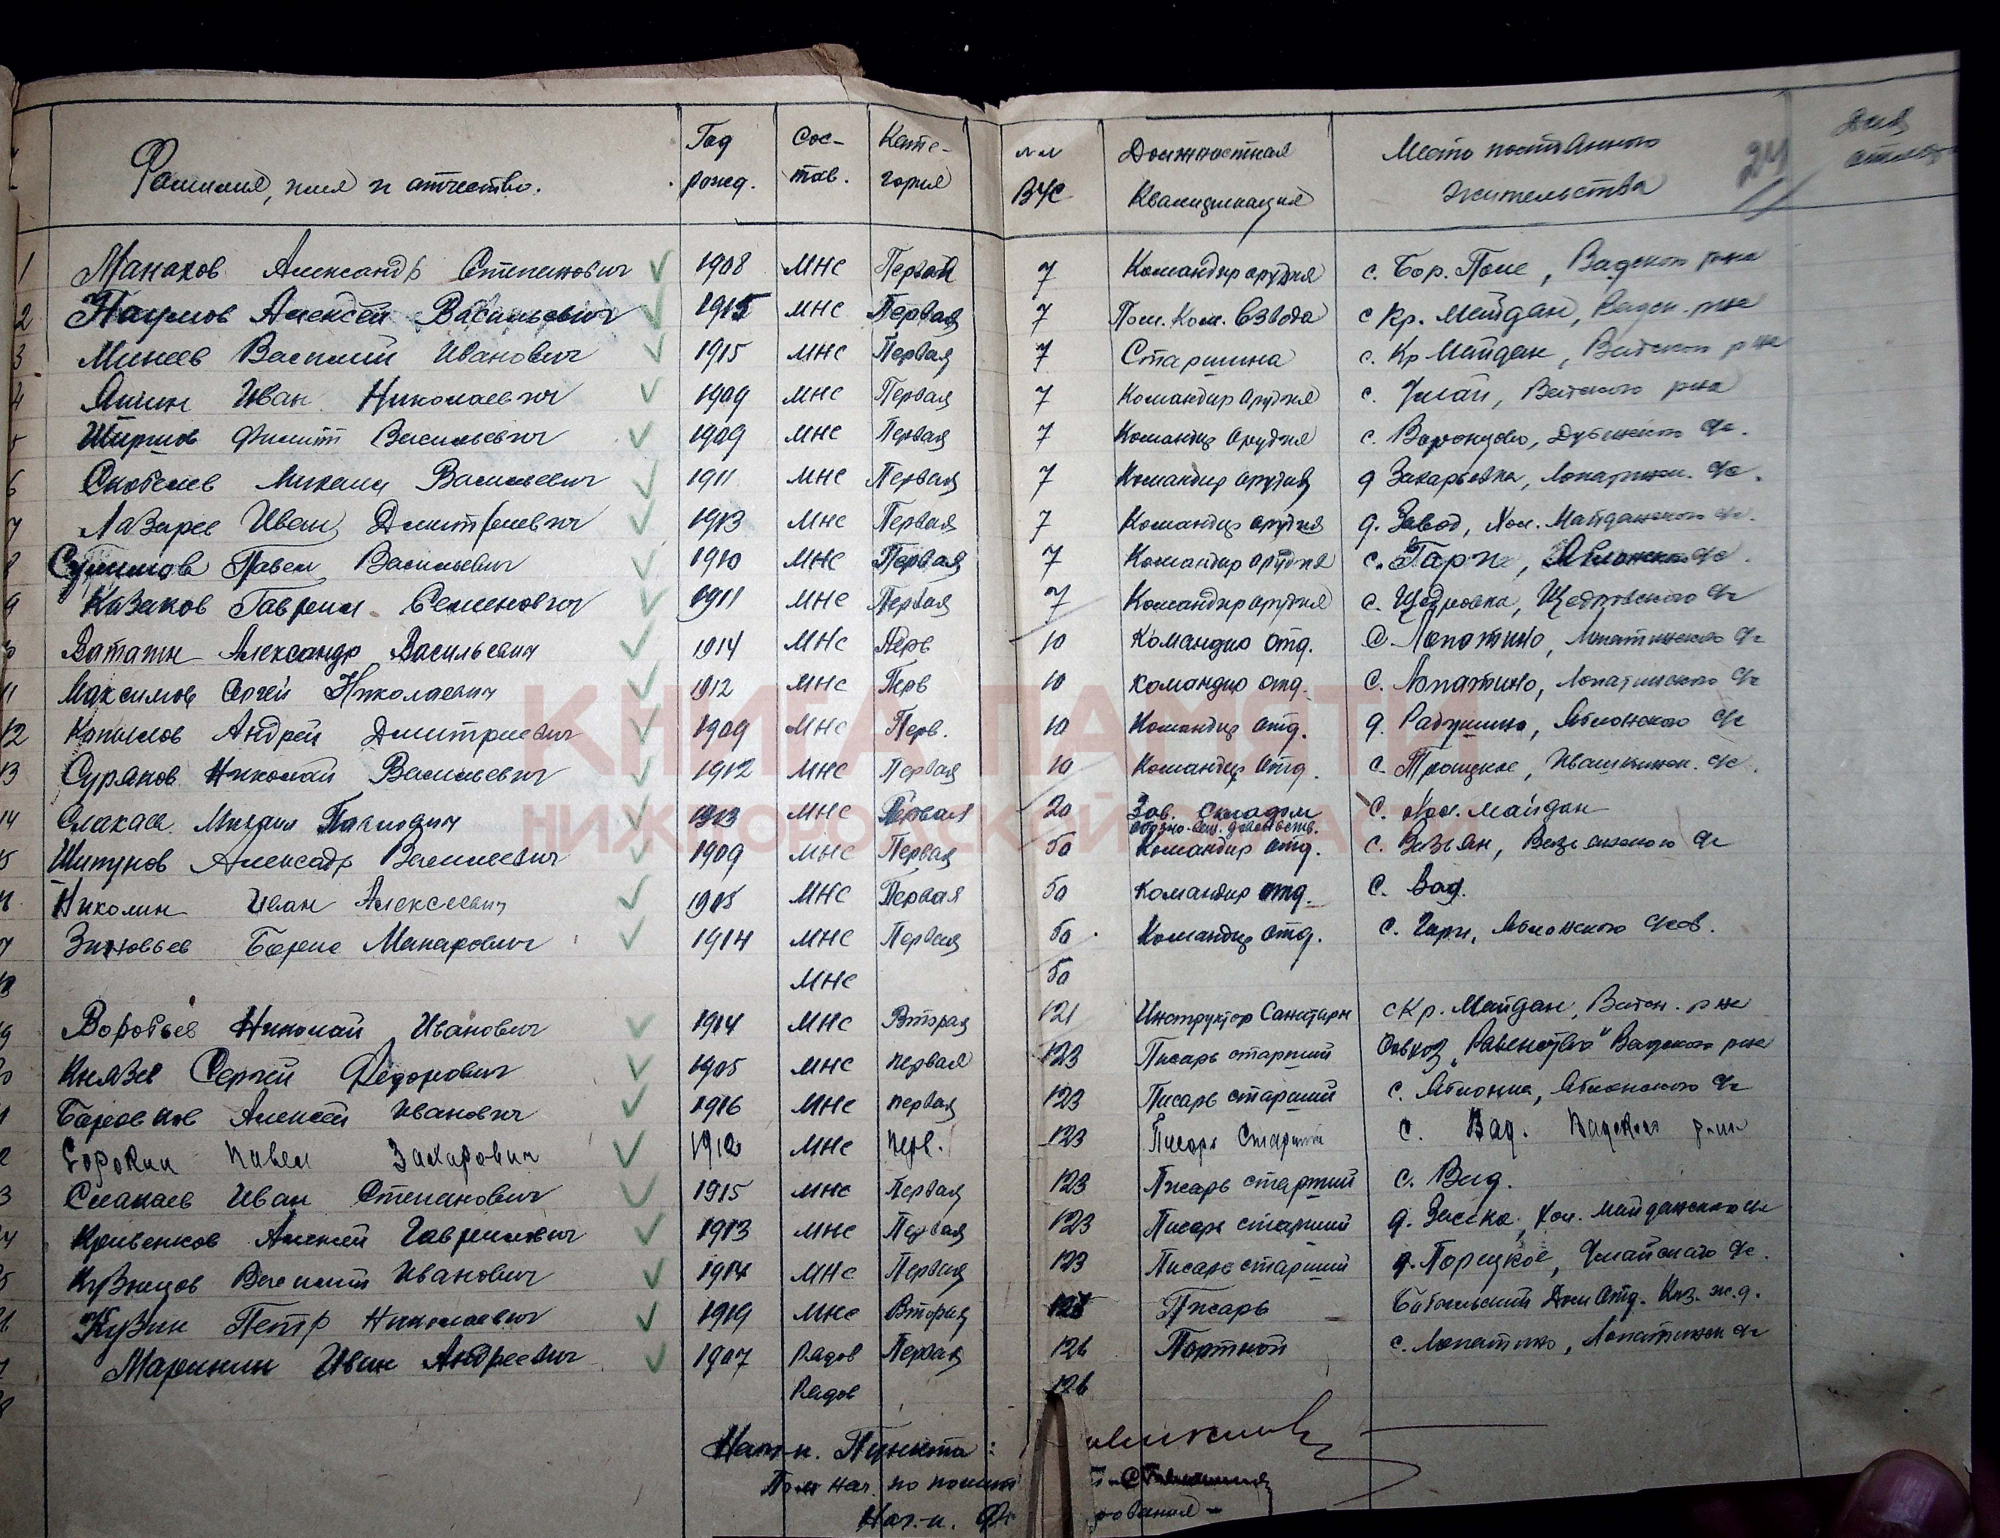 Фамилия, имя и отчество. Год рожд. Состав. Категория №№ ВУС Должностная Квалификация Место постоянного жительства 24
1 Манахов Александр Степанович 1908 МНС Первая 7 Командир орудия с. Бор. Поле, Вадского р-на
2 Наумов Алексей Васильевич 1915 МНС Первая 7 Пом. Ком. Взвода с Кр. Майдан, Вадск. р-на
3 Минеев Василий Иванович 1915 МНС Первая 7 Старшина с. Кр Майдан, Вадского р-на
4 Яшин Иван Николаевич 1909 МНС Первая 7 Командир орудия с. Умай, Вадского р-на
5 Филипп Васильевич 1909 МНС Первая 7 Командир орудия с. Воронцово, Дубенского с/с.
6 Скобелев Михаил Васильевич 1911 МНС Первая 7 Командир орудия д Захарьевка, Лопатинск. с/с.
7 Лазарев Иван Дмитриевич 1913 МНС Первая 7 Командир орудия д. Завод, Хол. Майданского с/с.
Павел Васильевич 1910 МНС Первая 7 Командир орудия с. Гари, Яблонского с/с.
9 Казаков Гаврил Семенович 1911 МНС Первая 7 Командир орудия с. Щедровка, Щедровского с/с
Ватагин Александр Васильевич 1914 МНС Перв 10 Командир отд. с Лопатино, Лопатинского с/с
11 Максимов Сергей Николаевич 1912 МНС Перв 10 командир отд. с. Лопатино, Лопатинского с/с
12 Копылов Андрей Дмитриевич 1909 МНС Перв. 10 Командир отд. д. Радушино, Яблонского с/с
13 Сураков Николай Васильевич 1912 МНС Первая 10 Командир отд. с. Троицкое, Ивашкинск. с/с.
14 Михаил Павлович 1913 МНС Первая 20 Зав. складом с. Хол. Майдан
обозно-вещ. довольств.
Шипунов Александр Васильевич 1909 МНС Первая 50 Командир отд. с. Везьян, Везьянского с/с
Николин Иван Алексеевич 1905 МНС Первая 50 Командир отд. с. Вад.
Зиновьев Борис Макарович 1914 МНС Первая 50 Командир отд. с. Гари, Яблонского с/сов.
18 МНС 50
Воробьев Николай Иванович 1914 МНС Вторая 121 Инструктор Санитарн с Кр. Майдан, Вадск. р-на
Князев Сергей Федорович 1905 МНС первая 123 Писарь старший Совхоз „Равенство" Вадского р-на
Алексей Иванович 1916 МНС первая 123 Писарь старший с. Яблонка, Яблонского с/с
Сорокин Павел Захарович 1912 МНС перв. 123 Писарь Старший с. Вад. Вадского р-на
Слакаев Иван Степанович 1915 МНС Первая 123 Писарь старший с. Вад.
Кривенков Алексей Гаврилович 1913 МНС Первая 123 Писарь старший д. Засека, Хол. Майданского с/с
Кузнецов Василий Иванович 1914 МНС Первая 123 Писарь старший д. Порецкое, Умайского с/с.
Кузин Петр Николаевич 1919 МНС Вторая Писарь Дом Отд. Каз. ж.д.
Маринин Иван Андреевич 1907 Рядов Первая 126 Портной с. Лопатино, Лопатинск с/с
Рядов 126
Нач-к. Пункта:
Пом нач. по полит
Нач-к.
КНИГА ПАМЯТИ
НИЖЕГОРОДСКОЙ ОБЛАСТИ